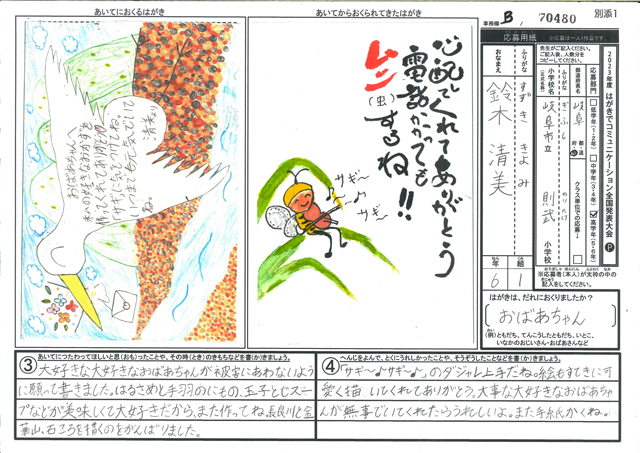 あいてにおくるはがき
おばあちゃんへ
私の好きなおかずを
いつまでも元気でいて
ね。
清美
あいてからおくられてきたはがき
心配してくれてありがとう
電話かかっても
ムシ(虫)するね!!
サギ〜♪
サギ〜
事務欄 B 70480
別添1
応募用紙 ※応募は一人1作品です。
2023年度 はがきでコミュニケーション全国発表大会
先生がご記入ください。
ご記入後、人数分を
コピーしてください。
応募部門
低学年(1・2年)
中学年(3・4年)
高学年(5・6年)
都道府県名
岐阜
小学校名
ふりがな
ぎふし のりたけ
岐阜市立 則武 小学校
クラス単位での応募
ふりがな
すずき きよみ
おなまえ
鈴木 清美
年 6
組 1
※応募者(本人)が太枠の中の
記入をしてください。
はがきは、だれにおくりましたか?
おばあちゃん
(例)ともだち、てんこうしたともだち、いとこ、
いなかのおじいさん・おばあさんなど
③ あいてにつたわってほしいと思(おも)ったことや、その時(とき)のきもちなどを書(か)きましょう。
大好きな大好きなおばあちゃんが被害にあわないよう
に願って書きました。はるさめと手羽のにもの、玉子とじスー
プなどが美味しくて大好きだから、また作ってね。長良川と金
華山、石ころを描くのをがんばりました。
④ へんじをよんで、とくにうれしかったことや、そうぞうしたことなどを書(か)きましょう。
「サギ〜♪サギ〜♪」のダジャレ上手だね。絵もすてきに可
愛く描いてくれてありがとう。大事な大好きなおばあちゃ
んが無事でいてくれたらうれしいよ。また手紙かくね。